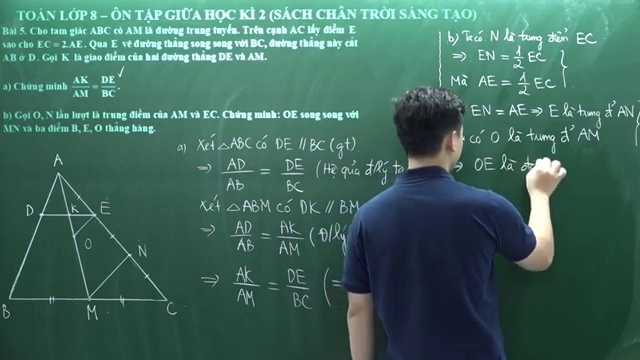 TOÁN LỚP 8 – ÔN TẬP GIỮA HỌC KÌ 2 (SÁCH CHÂN TRỜI SÁNG TẠO)
Bài 5. Cho tam giác ABC có AM là đường trung tuyến. Trên cạnh AC lấy điểm E
sao cho EC = 2.AE. Qua E vẽ đường thẳng song song với BC, đường thẳng này cắt
AB ở D. Gọi K là giao điểm của hai đường thẳng DE và AM.
a) Chứng minh AK/AM = DE/BC.
b) Gọi O, N lần lượt là trung điểm của AM và EC. Chứng minh: OE song song với
MN và ba điểm B, E, O thẳng hàng.
a) Xét △ABC có DE // BC (gt)
⇒ AD/AB = DE/BC (Hệ quả đ/lý
Xét △ABM có DK // BM
⇒ AD/AB = AK/AM (Đ/lý
⇒ AK/AM = DE/BC (=
b) Ta có N là trung điểm EC
⇒ EN = 1/2 EC
Mà AE = 1/2 EC
EN = AE ⇒ E là trung đ' AN
có O là trung đ' AM
⇒ OE là
A
D
K
E
O
N
B
M
C